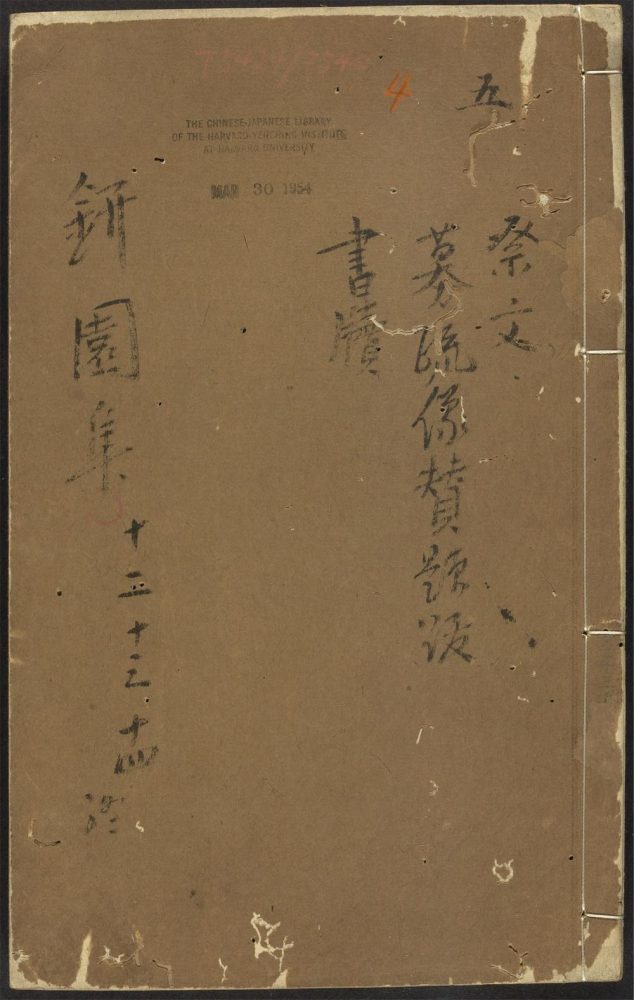 4
五
THE CHINESE-JAPANESE LIBRARY
OF THE HARVARD-YENCHING INSTITUTE
AT HARVARD UNIVERSITY
MAR 30 1954
祭文
募疏像贊題跋
書牘
鈃園集 十二 十三 十四